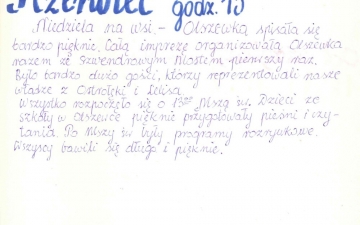 Czerwiec godz. 13
"Niedziela na wsi" - Olszewka spisała się
bardzo pięknie. Całą imprezę organizowała Olszewka
razem ze Szwendrowym Mostem pierwszy raz.
Było bardzo dużo gości, którzy reprezentowali nasze
władze z Ostrołęki i Lelisa.
Wszystko rozpoczęło się o 13⁰⁰ Mszą św. Dzieci ze
szkoły w Olszewce pięknie przygotowały pieśni i czy-
tania. Po Mszy św były programy rozrywkowe.
Wszyscy bawili się długo i pięknie.